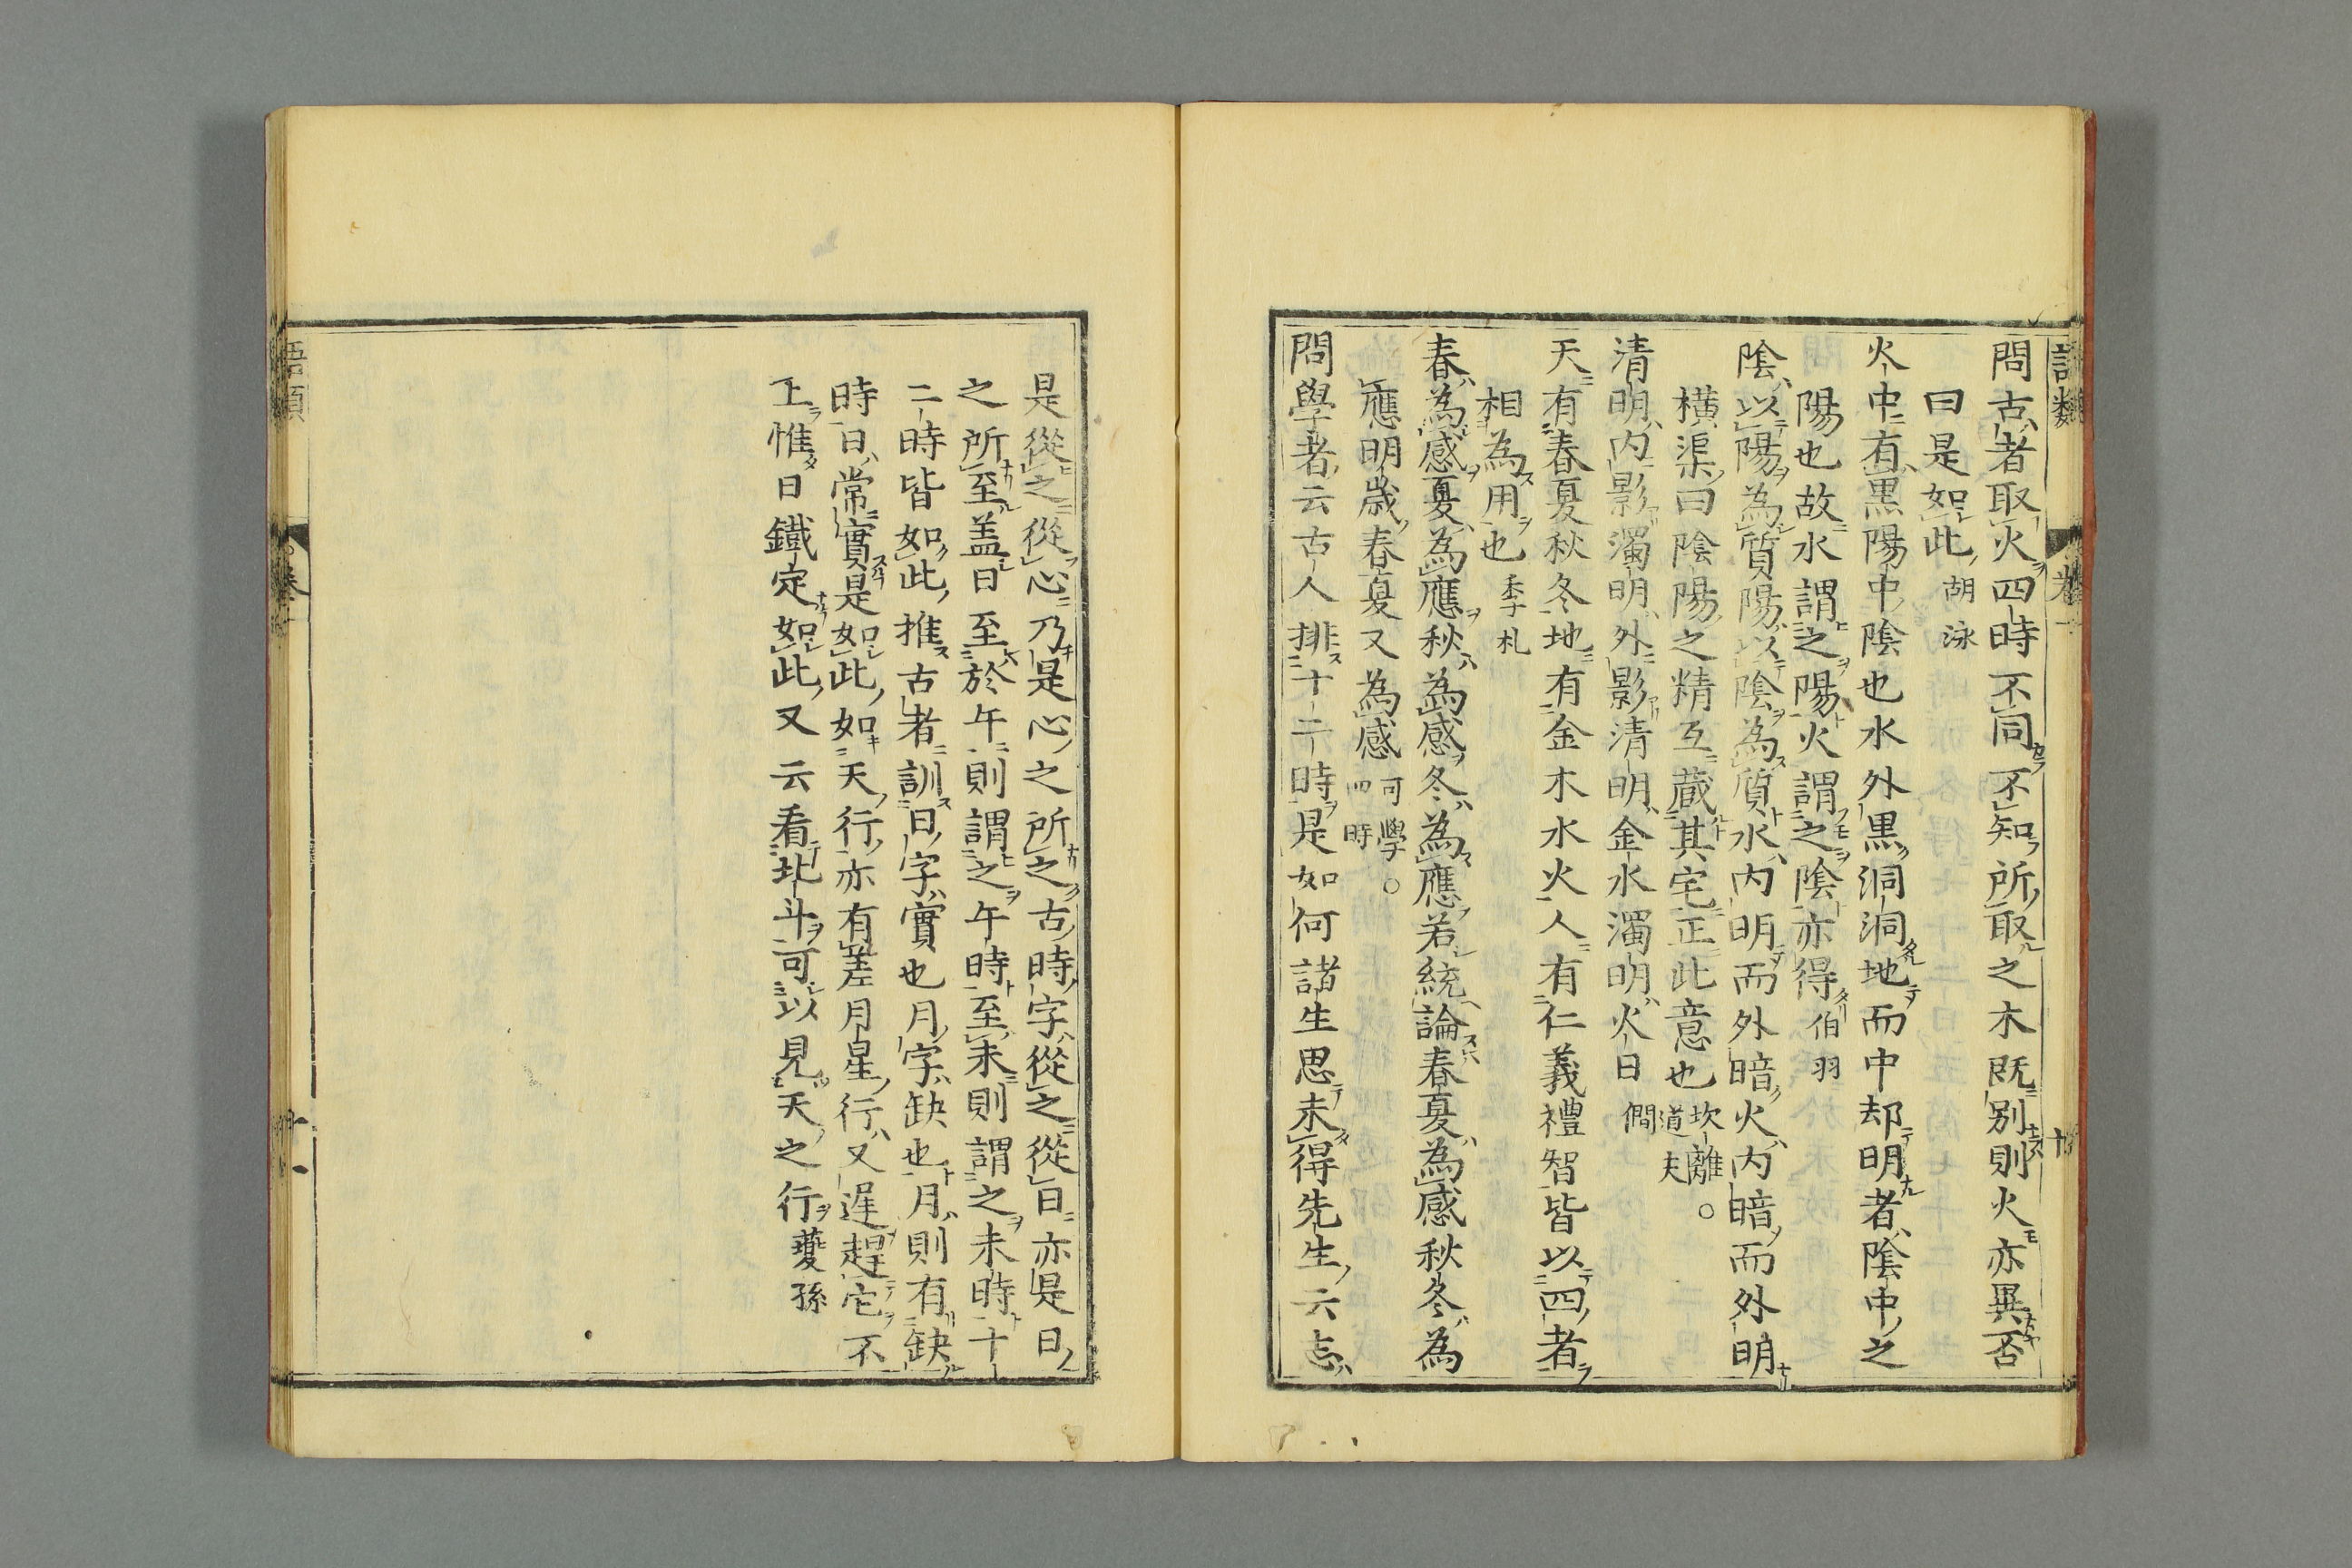 語類 卷一 十
問古者取火四時不同不知所取之木既別則火亦異否
曰是如此胡泳
火中有黒陽中陰也水外黒洞洞地而中却明者陰中之
陽也故水謂之陽火謂之陰亦得伯羽
陰以陽為質陽以陰為質水内明而外暗火内暗而外明
橫渠曰陰陽之精互蔵其宅正此意也坎離○道夫
清明内影濁明外影清明金水濁明火日僩
天有春夏秋冬地有金木水火人有仁義禮智皆以四者
相為用也季札
春為感夏為應秋為感冬為應若統論春夏為感秋冬為
應明歳春夏又為感可學○四時
問學者云古人排十二時是如何諸生思未得先生云志
是從之從心乃是心之所之古時字從之從日亦是日
之所至盖日至於午則謂之午時至未則謂之未時十
二時皆如此推古者訓日字實也月字缺也月則有缺
時日常實是如此如天行亦有差月星行又遲趕它不
上惟日鐵定如此又云看北斗可以見天之行夔孫
語類 卷一